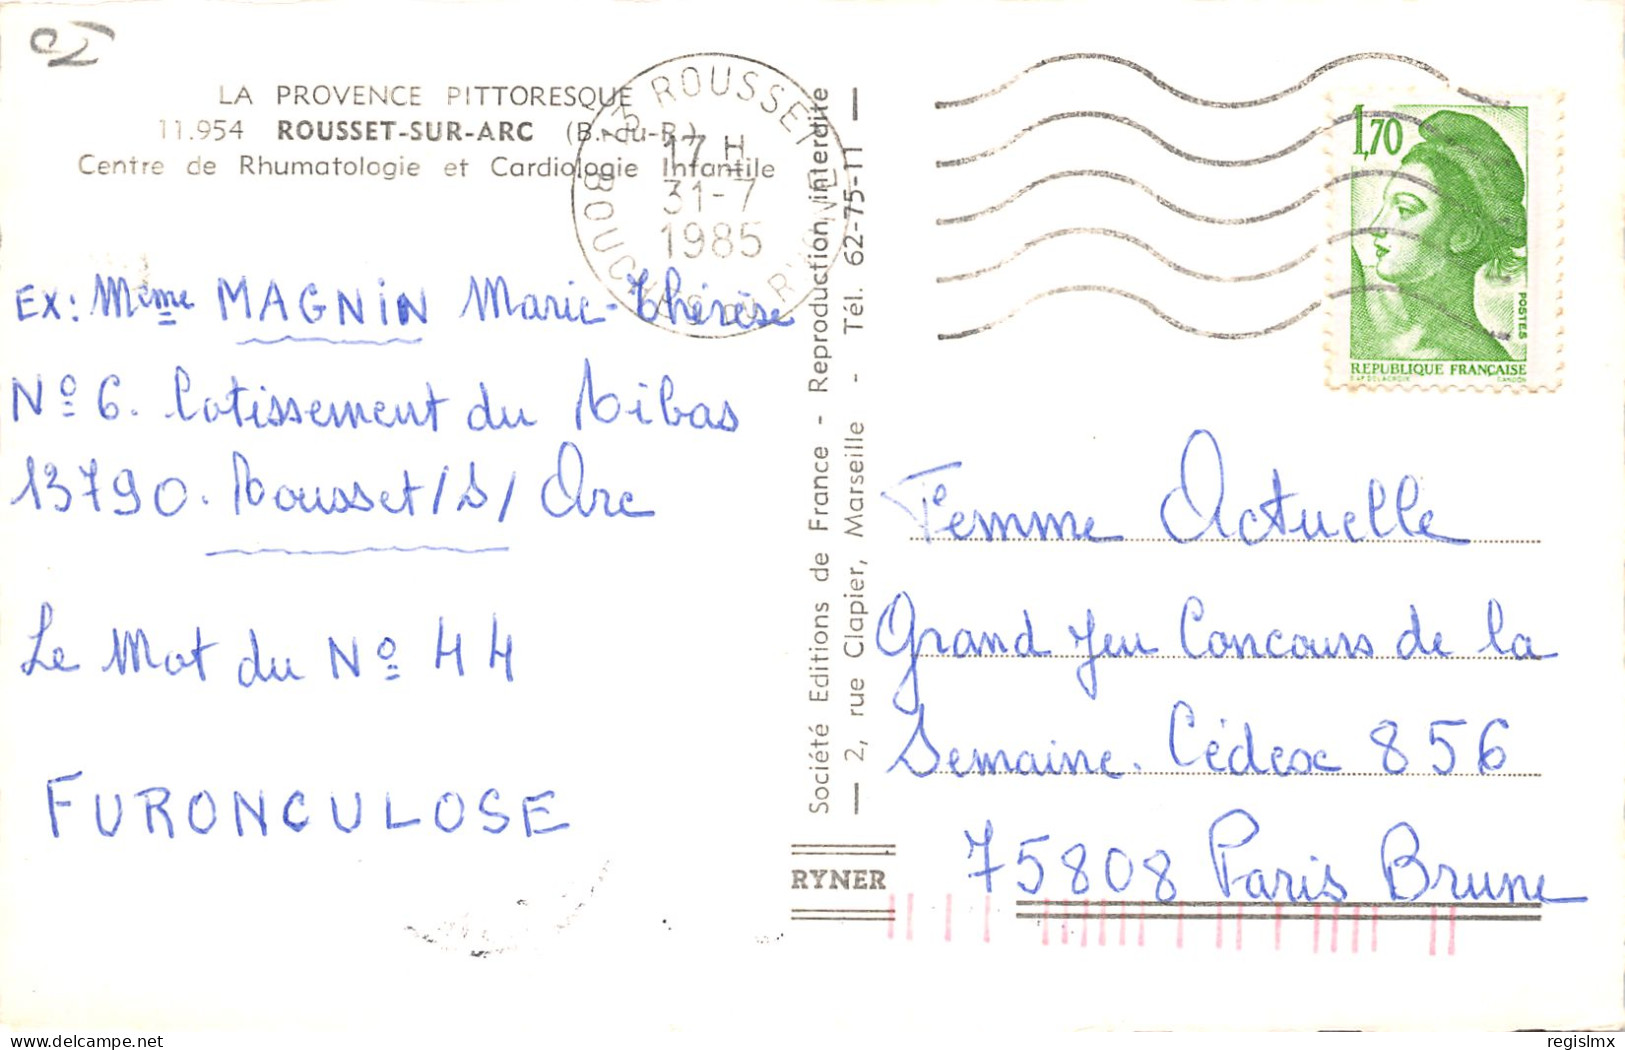 LA PROVENCE PITTORESQUE
11.954 ROUSSET-SUR-ARC (B.-du-R.)
Centre de Rhumatologie et Cardiologie Infantile
13 ROUSSET
17 H
31-7
1985
BOUCHES DU RHONE
EX: Mme MAGNIN Marie-Thérèse
No 6. Lotissement du Ribas
13790. Rousset/S/Arc
Le Mot du No 44
FURONCULOSE
Société Editions de France - Reproduction interdite
— 2, rue Clapier, Marseille - Tél. 62-75-11 —
RYNER
1,70
POSTES
REPUBLIQUE FRANÇAISE
D'AP. DELACROIX GANDON
Femme Actuelle
Grand Jeu Concours de la
Semaine. Cédex 856
75808 Paris Brune
delcampe.net
regislmx